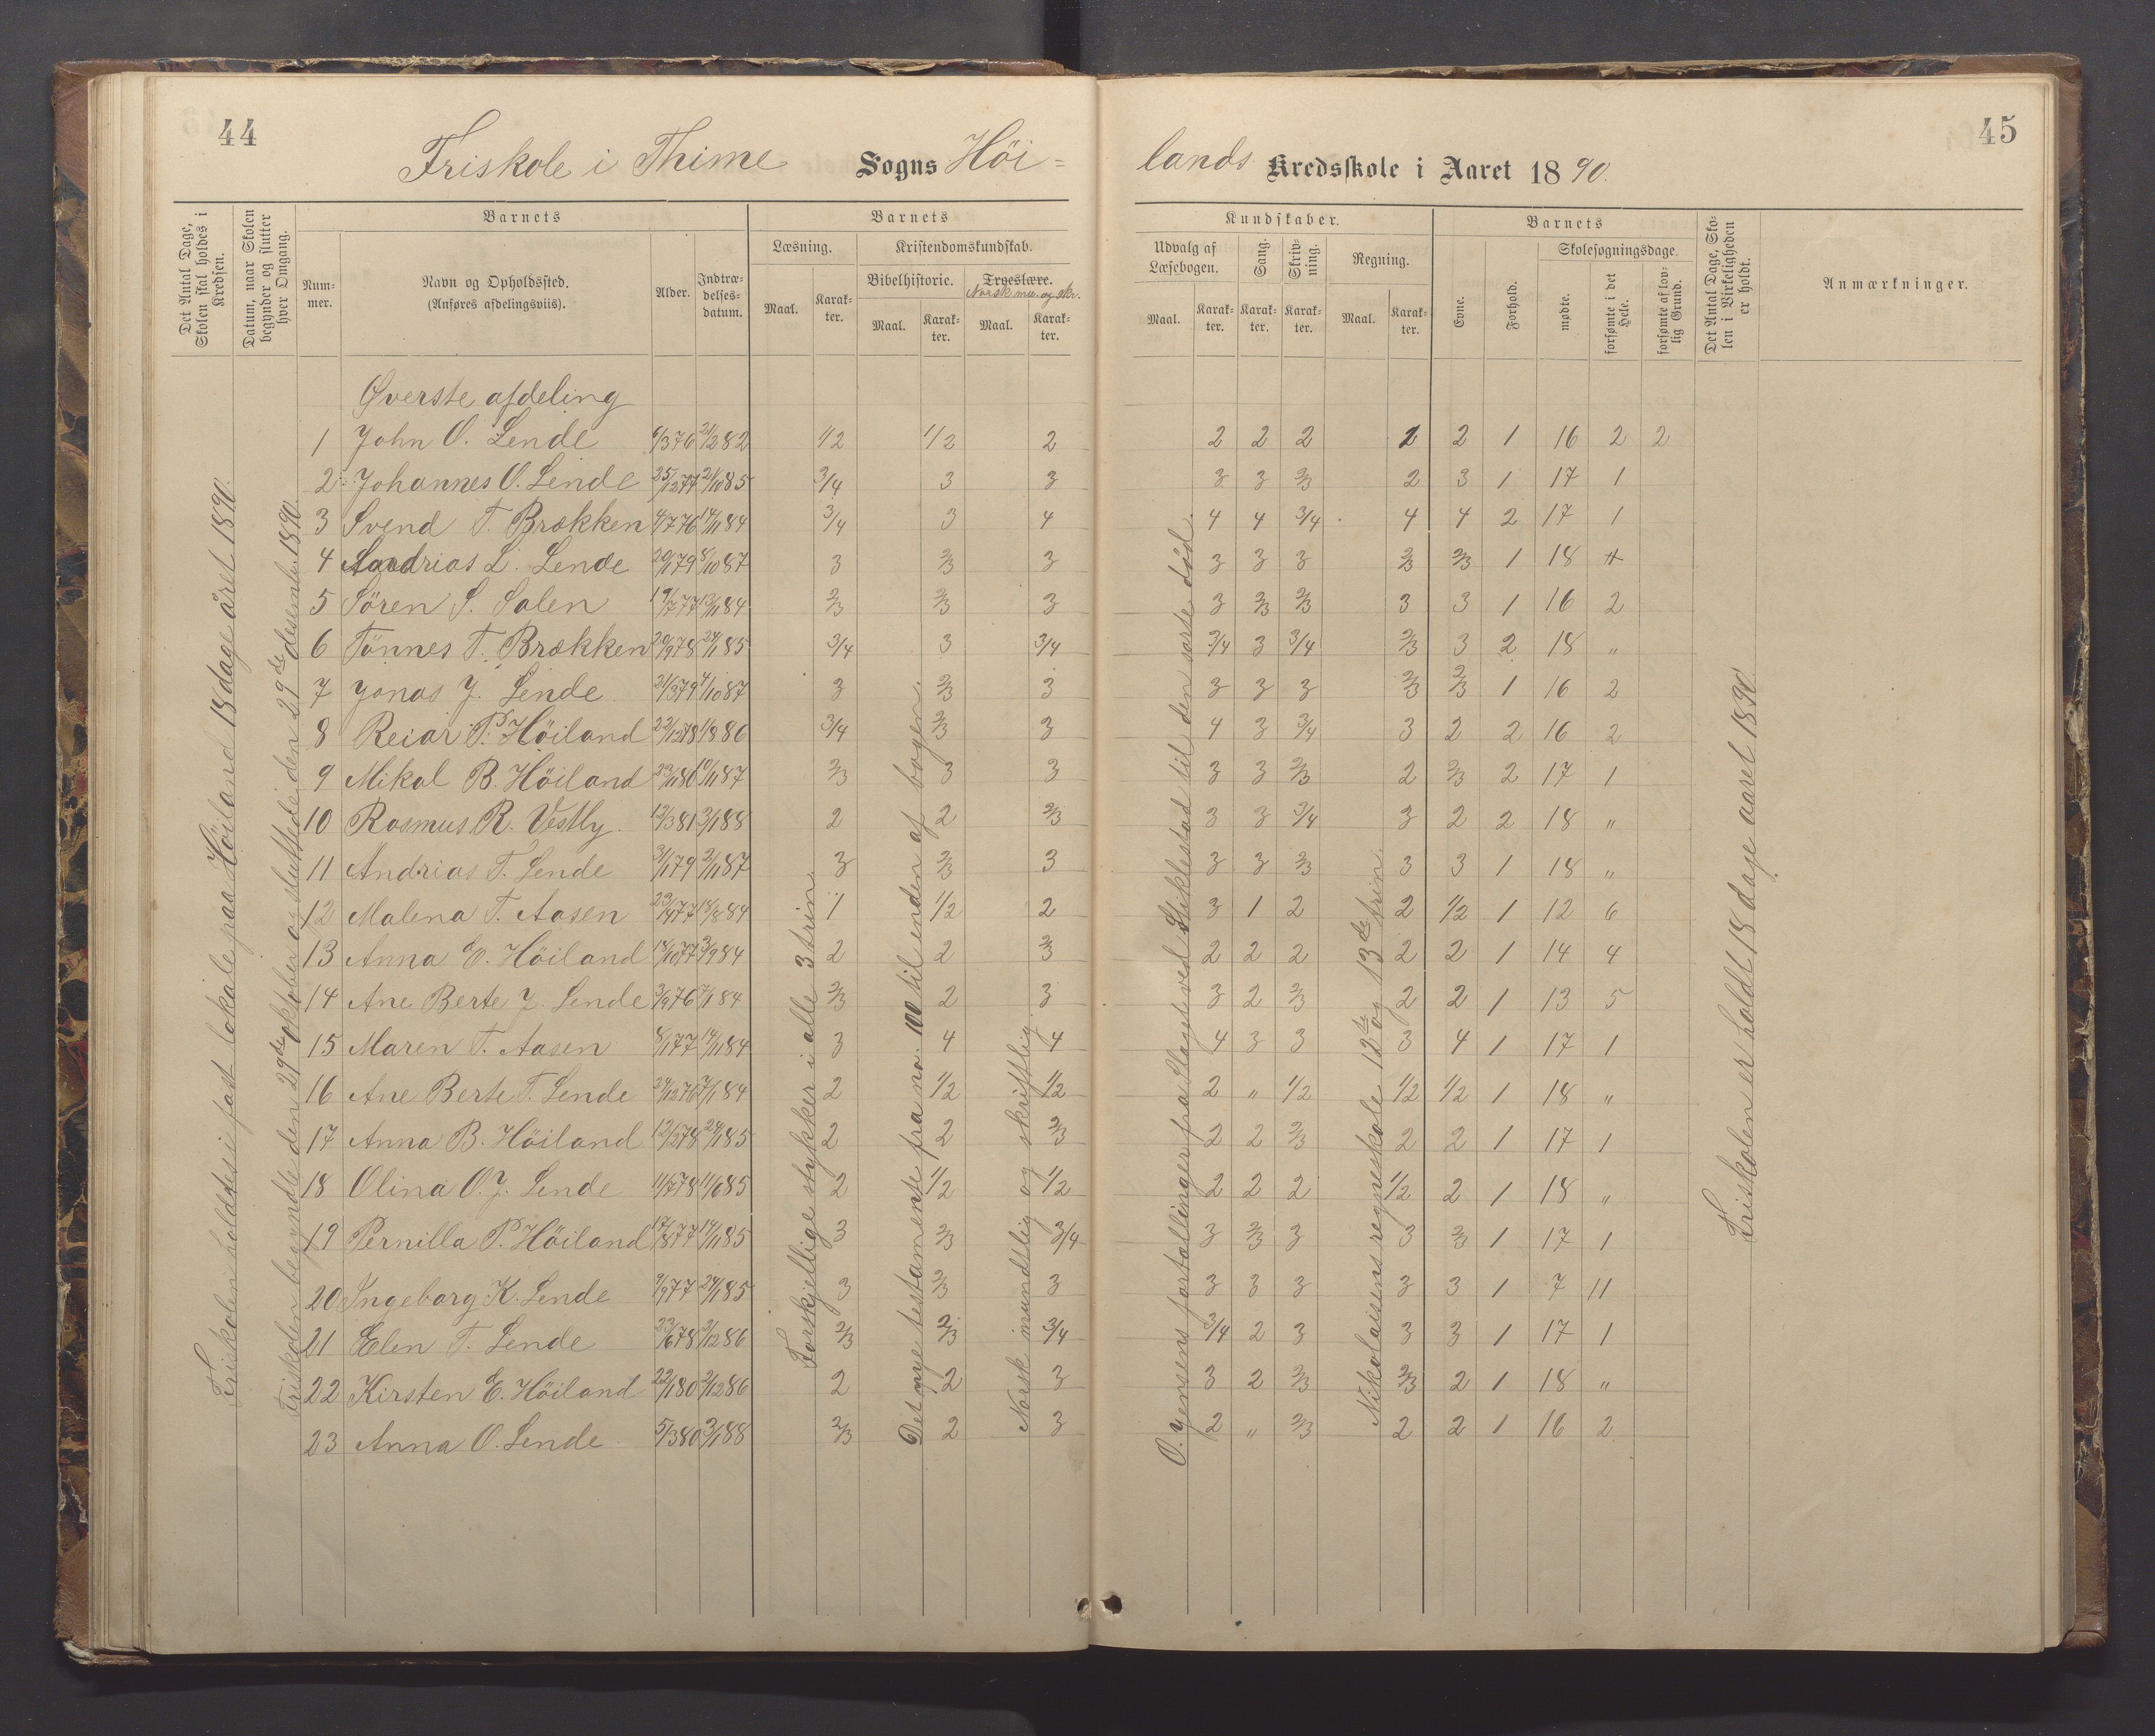 44
45
Friskole i Thime Sogns Höi=
lands Kredsskole i Aaret 1890.
Det Antal Dage, Skolen skal holdes i Kredsen.
Datum, naar Skolen begynder og slutter hver Omgang.
Barnets
Barnets
Kundskaber.
Barnets
Det Antal Dage, Skolen i Virkeligheden er holdt.
Anmærkninger.
Nummer.
Navn og Opholdssted.
(Anføres afdelingsviis).
Alder.
Indtrædelsesdatum.
Læsning.
Kristendomskundskab.
Bibelhistorie.
Troeslære.
Norsk mu. og skr.
Maal. Karakter. Maal. Karakter. Maal. Karakter.
Udvalg af Læsebogen. Sang. Skrivning. Regning.
Maal. Karakter. Karakter. Karakter. Maal. Karakter.
Evne. Forhold. Skolesøgningsdage.
mødte. forsømte i det Hele. forsømte af lovlig Grund.
Øverste afdeling
1 John O. Lende 6/3 76 21/2 82 1/2 1/2 2 2 2 2 1 2 1 16 2 2
2 Johannes O. Lende 25/12 77 21/10 85 3/4 3 3 3 3 2/3 2 3 1 17 1
3 Svend T. Brækken 4/7 76 14/1 84 3/4 3 4 4 4 3/4 4 4 2 17 1
4 Andrias L. Lende 20/1 79 8/10 87 3 2/3 3 3 3 3 2/3 2/3 1 18
5 Sören S. Salen 19/7 77 13/1 84 2/3 2/3 3 3 2/3 2/3 3 3 1 16 2
6 Tönnes T. Brækken 20/9 78 24/1 85 3/4 3 3/4 3/4 3 3/4 2/3 3 2 18 "
7 Jonas J. Lende 21/3 79 4/10 87 3 2/3 3 3 3 3 2/3 2/3 1 16 2
8 Reiar P. Höiland 22/12 78 1/8 86 3/4 2/3 3 4 3 3/4 3 2 2 16 2
9 Mikal B. Höiland 23/1 80 10/1 87 2/3 3 3 3 3 2/3 2 2/3 2 17 1
10 Rasmus R. Vestly 12/3 81 3/1 88 2 2 2/3 3 3 3/4 3 2 2 18 "
11 Andrias T. Lende 3/1 79 2/11 87 3 2/3 3 3 3 2/3 3 3 1 18 "
12 Malena T. Aasen 23/4 77 18/8 84 1 1/2 2 3 1 2 2 1/2 1 12 6
13 Anna E. Höiland 18/10 77 3/9 84 2 2 2/3 2 2 2 2 2 1 14 4
14 Ane Berte J. Lende 3/9 76 7/1 84 2/3 2 3 3 2 2/3 2 2 1 13 5
15 Maren T. Aasen 8/1 77 14/1 84 3 4 4 4 3 3 3 4 1 17 1
16 Ane Berte T. Lende 24/12 76 7/1 84 2 1/2 1/2 2 " 1/2 1/2 1/2 1 18 "
17 Anna B. Höiland 12/2 78 24/1 85 2 2 2/3 2 2 2/3 2 2 1 17 1
18 Olina O. J. Lende 11/7 78 11/6 85 2 1/2 1/2 2 2 2 1/2 2 1 18 "
19 Pernilla P. Höiland 17/8 77 14/1 85 3 2/3 3/4 3 2/3 3 3 2/3 1 17 1
20 Ingeborg K. Lende 9/9 77 24/1 85 3 2/3 3 3 3 3 3 3 1 7 11
21 Elen T. Lende 23/6 78 2/12 86 2/3 2/3 3/4 3/4 2 3 3 3 1 17 1
22 Kirsten E. Höiland 22/1 80 2/12 86 2 2 3 3 2 2/3 2/3 2 1 18 "
23 Anna O. Lende 5/3 80 3/1 88 2/3 2 3 2 " 2/3 2 2 1 16 2
Friskolen holdtes i fast lokale paa Höiland 18 dage året 1890.
Friskolen begyndte den 29de oktober og sluttede den 29de desember 1890.
Forskjellige stykker i alle 3 trin.
Det nye testamente fra no. 100 til enden af bogen.
Norsk mundtlig og skriftlig.
O. Jensens fortællinger fra Slaget ved Stiklestad til den sorte død.
Nikolaisens regneskole 12te og 13de trin.
Friskolen er holdt 18 dage aaret 1890.